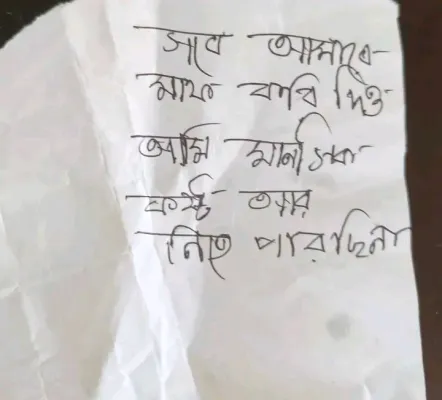 সবে আমাকে
মাফ করি দিও
আমি মানসিক
কষ্ট আর
নিতে পারছিনা